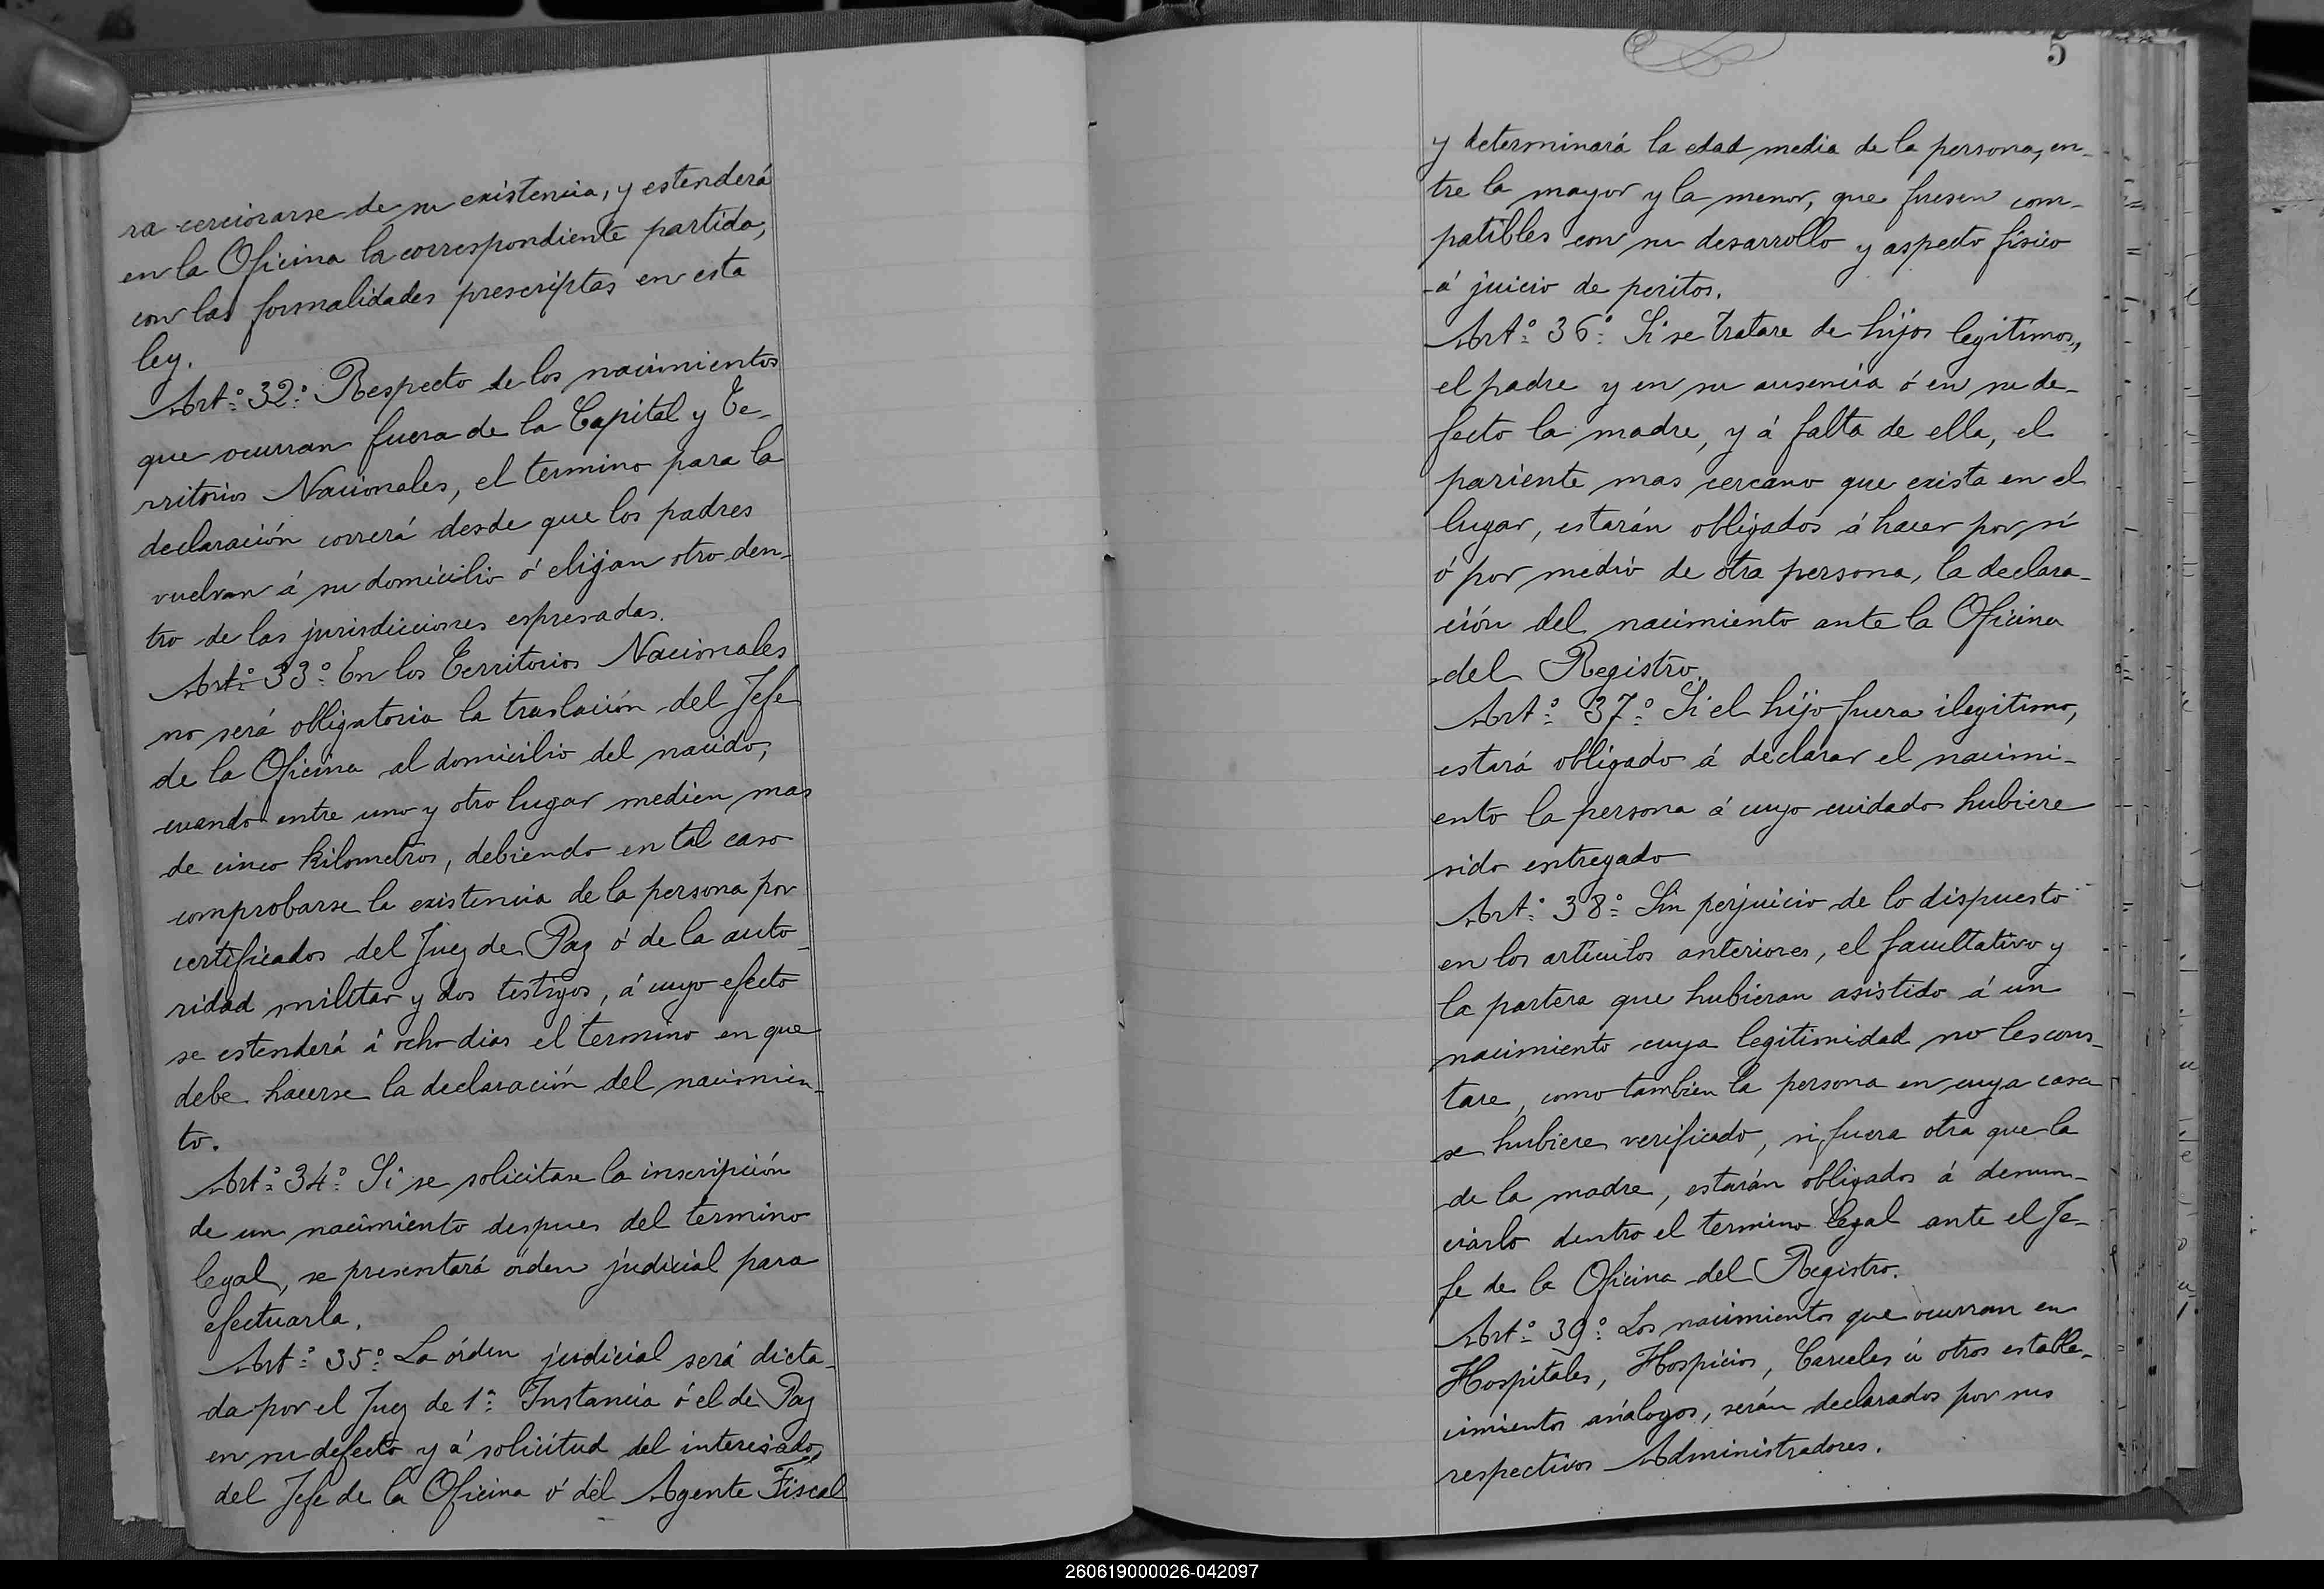 ra cerciorarse de su existencia, y estenderá
en la Oficina la correspondiente partida,
con las formalidades prescriptas en esta
ley.
Art.º 32.º Respecto de los nacimientos
que ocurran fuera de la Capital y Te-
rritorios Nacionales, el termino para la
declaración correrá desde que los padres
vuelvan á su domicilio ó elijan otro den-
tro de las jurisdicciones espresadas.
Art.º 33.º En los Territorios Nacionales
no será obligatoria la traslación del Jefe
de la Oficina al domicilio del nacido,
cuando entre uno y otro lugar medien mas
de cinco kilometros, debiendo en tal caso
comprobarse la existencia de la persona por
certificados del Juez de Paz ó de la auto-
ridad militar y dos testigos, á cuyo efecto
se estenderá á ocho dias el termino en que
debe hacerse la declaración del nacimien-
to.
Art.º 34.º Si se solicitase la inscripción
de un nacimiento despues del termino
legal, se presentará órden judicial para
efectuarla.
Art.º 35.º La órden judicial será dicta-
da por el Juez de 1.ª Instancia ó el de Paz
en su defecto y á solicitud del interesado,
del Jefe de la Oficina ó del Agente Fiscal
5
y determinará la edad media de la persona, en-
tre la mayor y la menor, que fuesen com-
patibles con su desarrollo y aspecto físico
á juicio de peritos.
Art.º 36.º Si se tratare de hijos legitimos,
el padre y en su ausencia ó en su de-
fecto la madre, y á falta de ella, el
pariente mas cercano que exista en el
lugar, estarán obligados á hacer por sí
ó por medio de otra persona, la declara-
ción del nacimiento ante la Oficina
del Registro.
Art.º 37.º Si el hijo fuera ilegitimo,
estará obligado á declarar el nacimi-
ento la persona á cuyo cuidado hubiere
sido entregado
Art.º 38.º Sin perjuicio de lo dispuesto
en los artículos anteriores, el facultativo y
la partera que hubieran asistido á un
nacimiento cuya legitimidad no les cons-
tare, como tambien la persona en cuya casa
se hubiere verificado, si fuera otra que la
de la madre, estarán obligados á denun-
ciarlo dentro el termino legal ante el Je-
fe de la Oficina del Registro.
Art.º 39.º Los nacimientos que ocurran en
Hospitales, Hospicios, Carceles ú otros estable-
cimientos análogos, serán declarados por sus
respectivos Administradores.
260619000026-042097